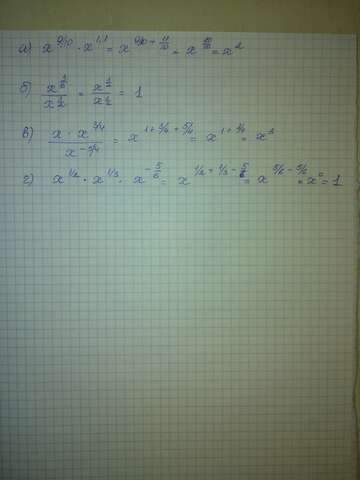 а) x^{9/10} · x^{1,1} = x^{9/10 + 11/10} = x^{20/10} = x^2
б) x^{1/2}/x^{1/2} = x^{1/2}/x^{1/2} = 1
в) x · x^{3/4}/x^{-5/4} = x^{1 + 3/4 + 5/4} = x^{1 + 8/4} = x^3
г) x^{1/2} · x^{1/3} · x^{-5/6} = x^{1/2 + 1/3 - 5/6} = x^{5/6 - 5/6} = x^0 = 1